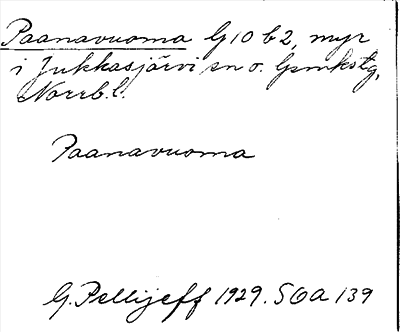 Paanavuoma G10 b2, myr
i Jukkasjärvi sn o. lpmkstg,
Norrb. l.
Paanavuoma
G. Pellijeff 1929. SOA 139